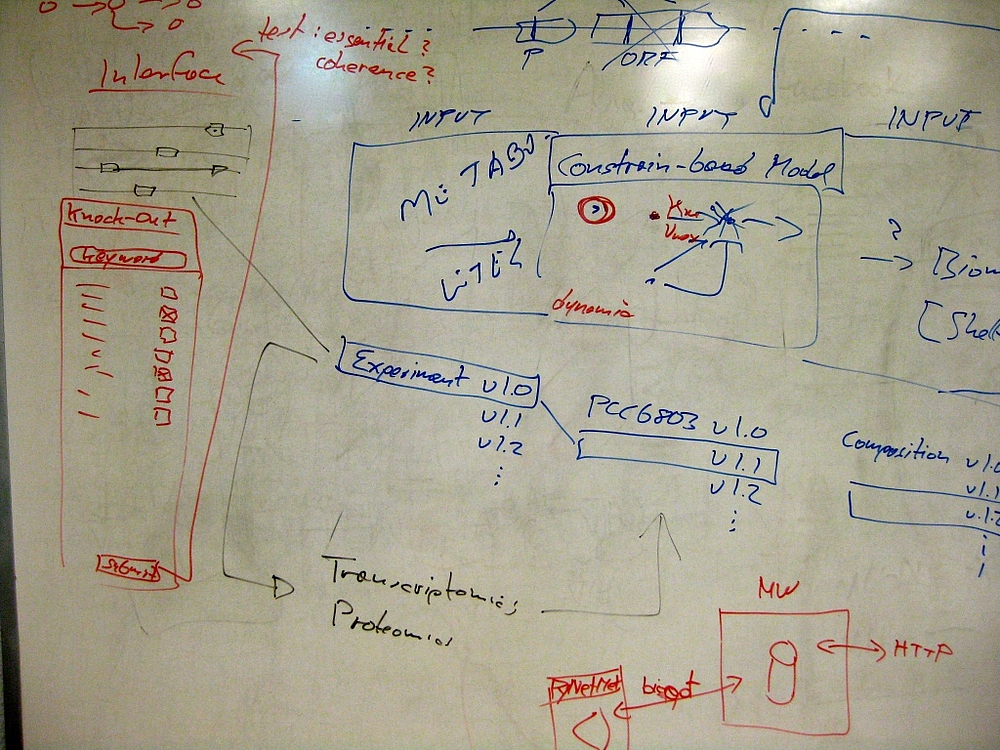 test: essential?
coherence?
Interface
P
ORF
INPUT
INPUT
INPUT
METABO
LITES
Constrain-based Model
Vmax
dynamic
?
[Shel
Knock-Out
Keyword
Submit
Experiment v1.0
v1.1
v1.2
PCC6803 v1.0
v1.1
v1.2
Composition v1.0
v1.1
v1.2
Transcriptomics
Proteomics
MW
HTTP
PyNetMet